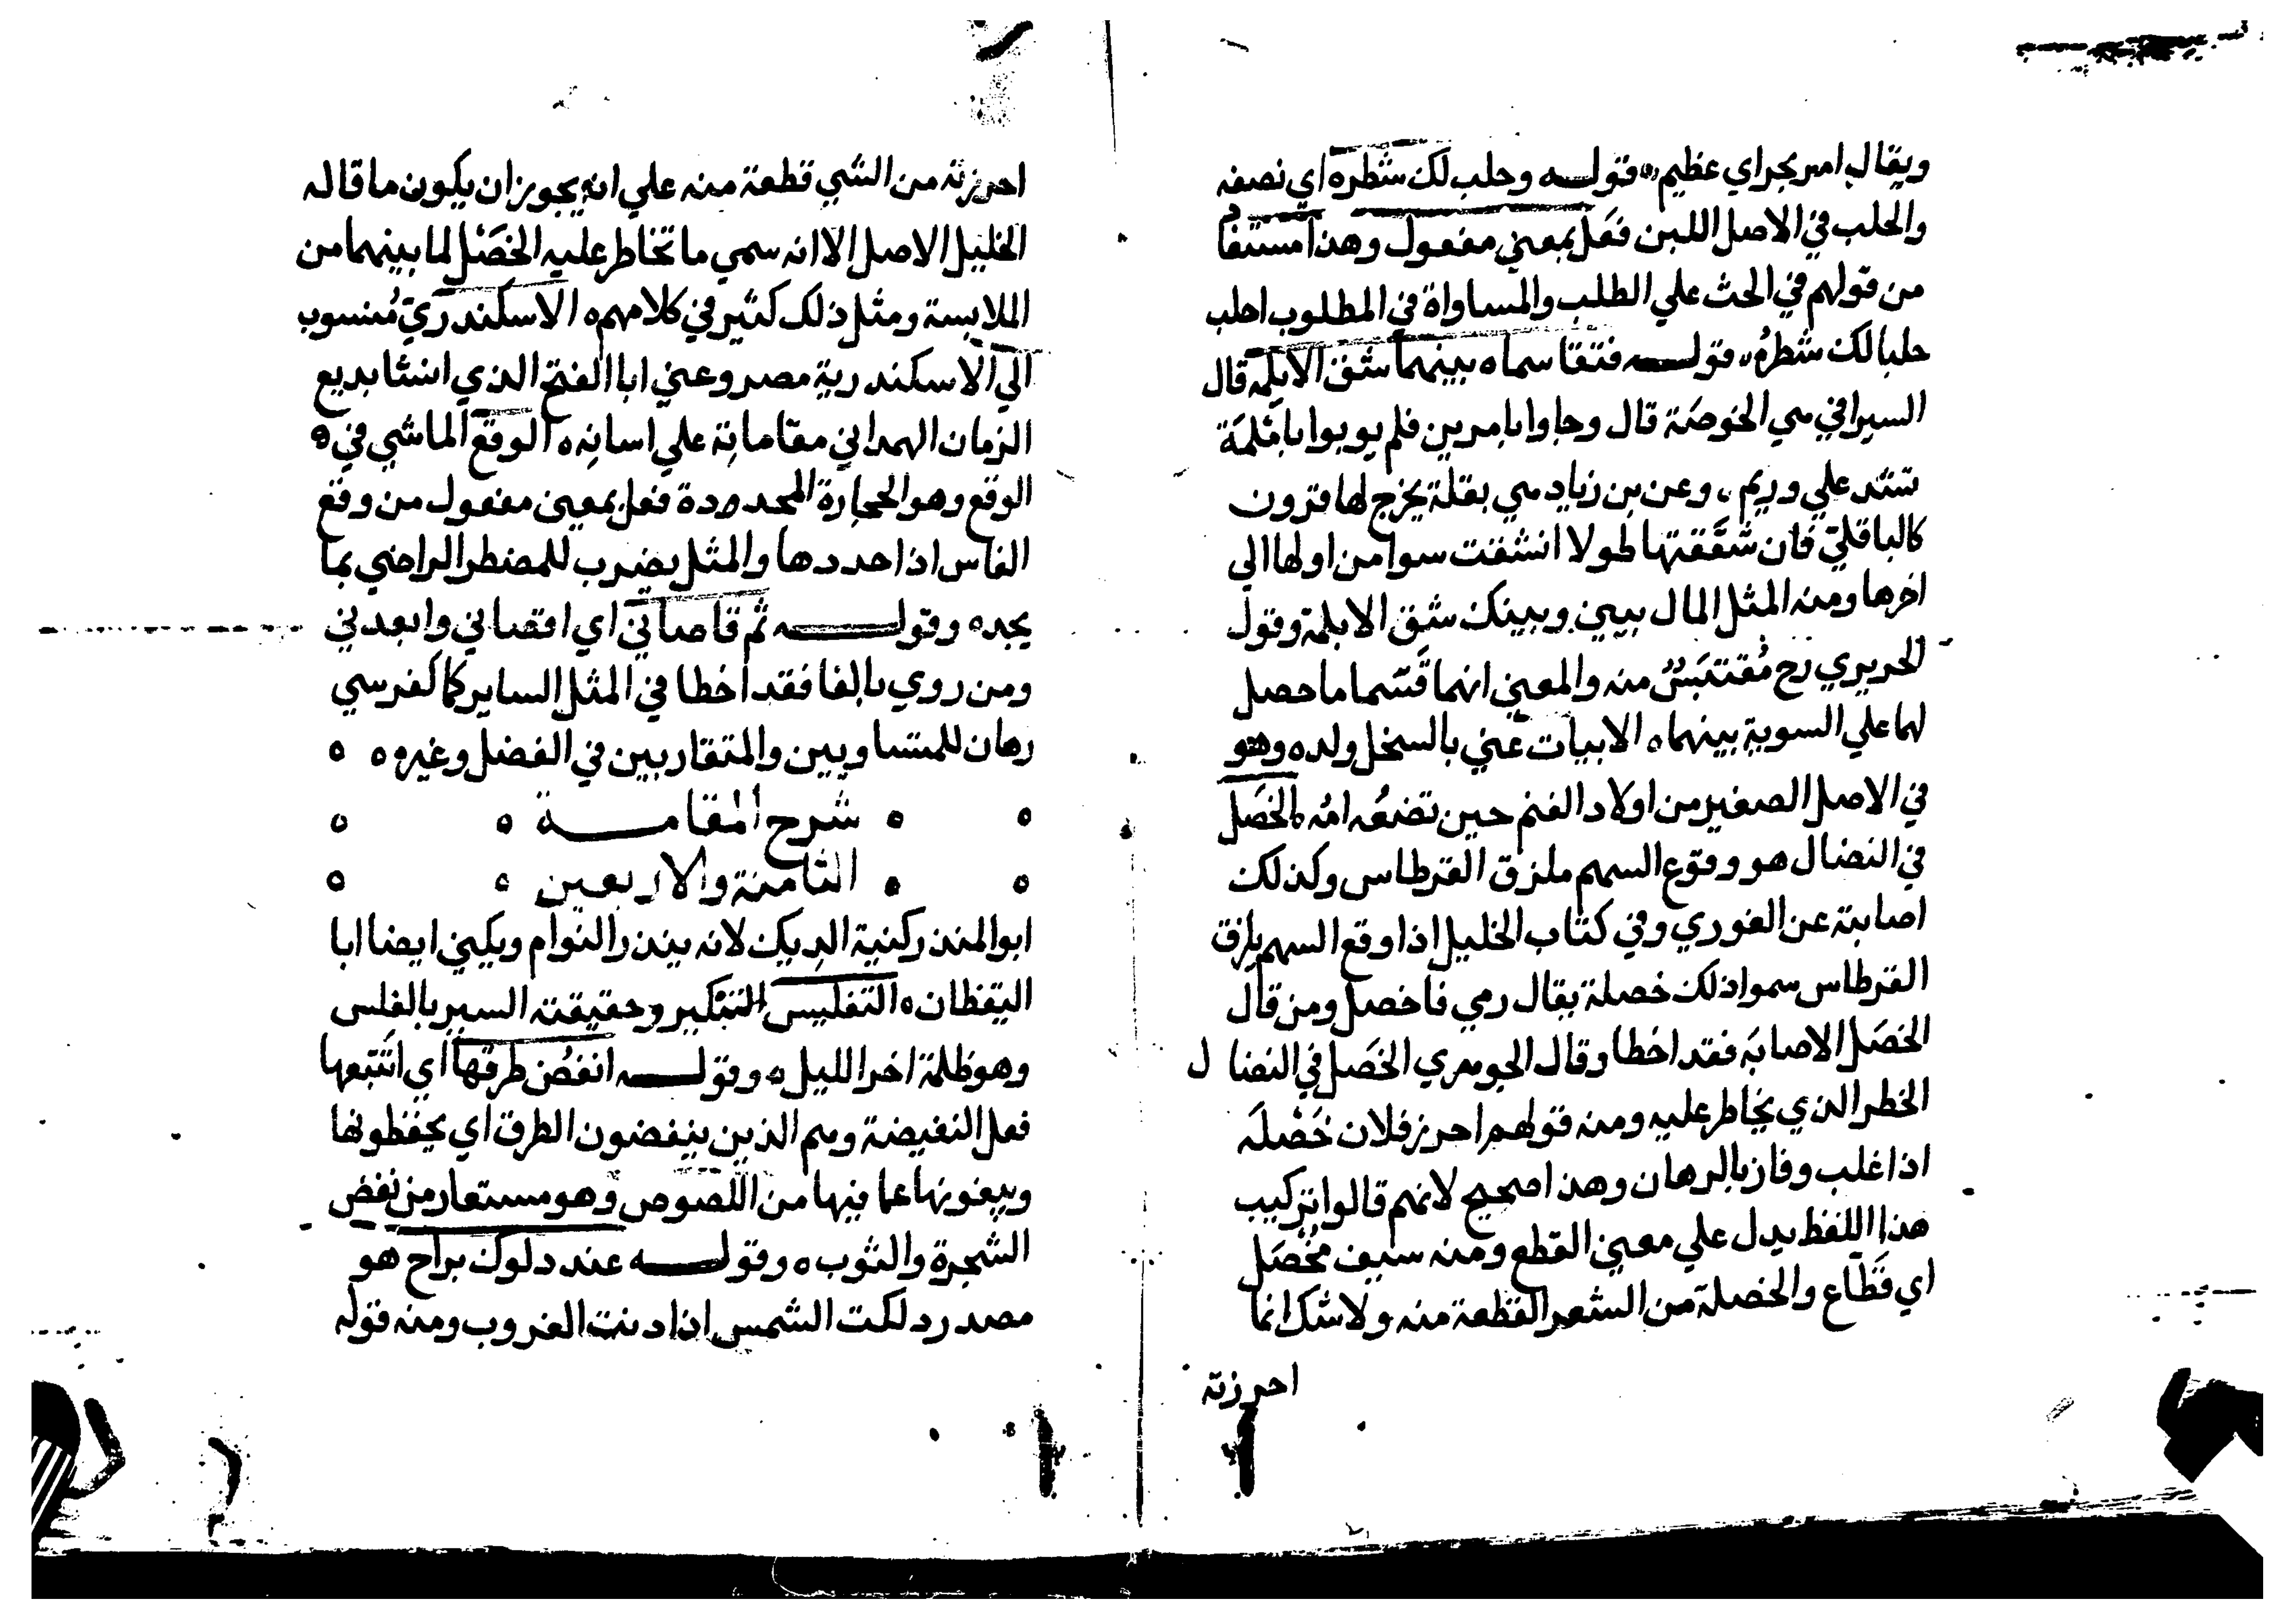 ويقال امر بجر اي عظيم ه قوله وحلب لك شطره اي نصفه
والحلب في الاصل اللبن فَعَل بمعني مفعول وهذا مستفاد
من قولهم في الحث علي الطلب والمساواة في المطلوب احلب
حلبا لك شطرُه، قوله فتقاسماه بينهما شق الابلمه قال
السيرافي هي الخوصَة قال وجاوا بامرين فلم يوبوا بابلمَة
تشد علي وريم، وعن بن زياد هي بقلة يخرج لها قرون
كالباقلي فان شقَّقتها طولا انشقت سوا من اولها الي
اخرها ومنه المثل المال بيني وبينك شق الابلمة وقول
الحريري رح مُقتَبَسٌ منه والمعني انهما قَسّما ما حصل
لهما علي السوية بينهما ه الابيات عني بالسخل ولده وهو
في الاصل الصغير من اولاد الغنم حين تضعُه امُه ه الخَصَل
في النضال هو وقوع السهم ملزق القرطاس وكذلك
اصابتة عن الغوري وفي كتاب الخليل اذا وقع السهم بلزق
القرطاس سموا ذلك خصلة يقال رمي فاخصل ومن قال
الخصَل الاصابَه فقد اخطا وقال الجوهري الخَصَل في النضال
الخطر الذي يخاطر عليه ومنه قولهم احرز فلان خَصْلَه
اذا غلب وفاز بالرهان وهذا صحيح لانهم قالوا تركيب
هذا اللفظ يدل علي معني القطع ومنه سيف مُخْصَل
اي قَطّاع والخصلة من الشعر القطعة منه ولا شك انما
احرزته
احرزته من الشي قطعة منه علي انه يجوز ان يكون ما قاله
الخليل الاصل الا انه سمي ما تخاطر عليه الخَصْل لما بينهما من
الملابسة ومثل ذلك كثير في كلامهم ه الاسكندريّ مُنسوب
الي الاسكندرية مصر وعني ابا الفتح الذي انشا بديع
الزمان الهمداني مقاماتة علي لسانه ه الوقع الماشي في ه
الوقع وهو الحجارة المحددة فعل بمعني مفعول من وقع
الفاس اذا حددها والمثل يضرب للمضطر الراضي بما
يجده وقوله ثم قاصاني اي اقصاني وابعدني
ومن روي بالفا فقد اخطا في المثل الساير كما كفرسي
رهان للمتساويين والمتقاربين في الفضل وغيره ه ه
ه ه شرح المقامة ه ه
ه ه الثامنة والاربعين ه ه
ابو المنذر كنية الديك لانه ينذر النوام ويكني ايضا ابا
اليقظان ه التغليس التبكير وحقيقته السير بالغلس
وهو ظلمة اخر الليل ه وقوله انفُض طرقها اي اتَتَبعها
فعل النفيضة وهم الذين ينفضون الطرق اي يحفظونها
ويبغونها عما فيها من اللصوص وهو مستعار من نفض
الشجرة والثوب ه وقوله عند دلوك براح هو
مصدر دلكت الشمس اذا دنت الغروب ومنه قوله